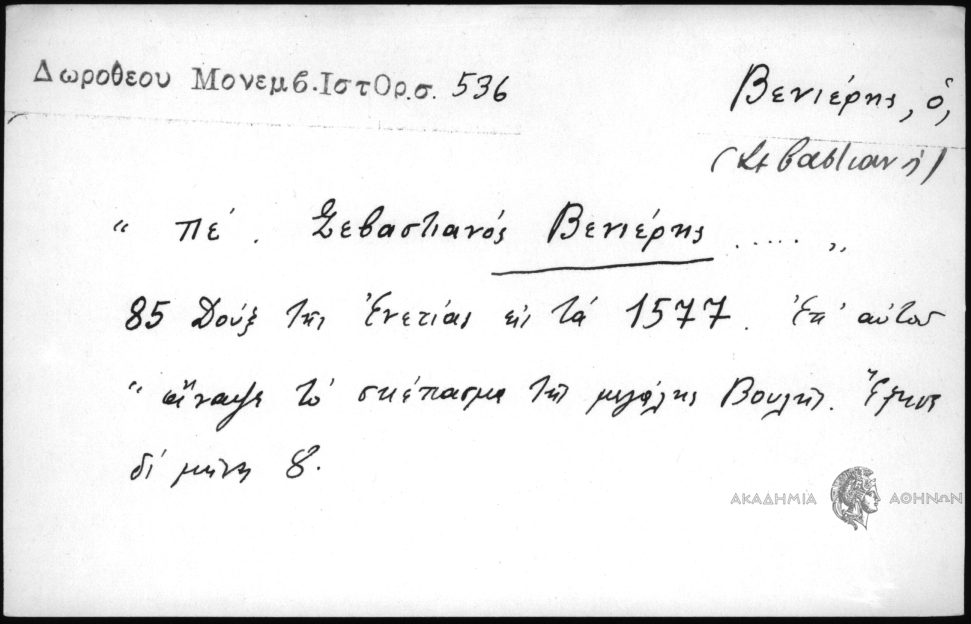 Δωροθεου Μονεμβ.Ιστορ.σ. 536
Βενιέρης, ὁ,
(Σεβαστιανὴ)
“ πέ. Σεβαστιανός Βενιέρης ..... „
85 Δούξ τῆς Ἐνετίας εἰς τά 1577. Ἐπ' αὐτοῦ
“ ἄναψε τὸ σκέπασμα τῆς μεγάλης Βουλῆς.
δέ μῆνες 8.
ΑΚΑΔΗΜΙΑ ΑΘΗΝΩΝ